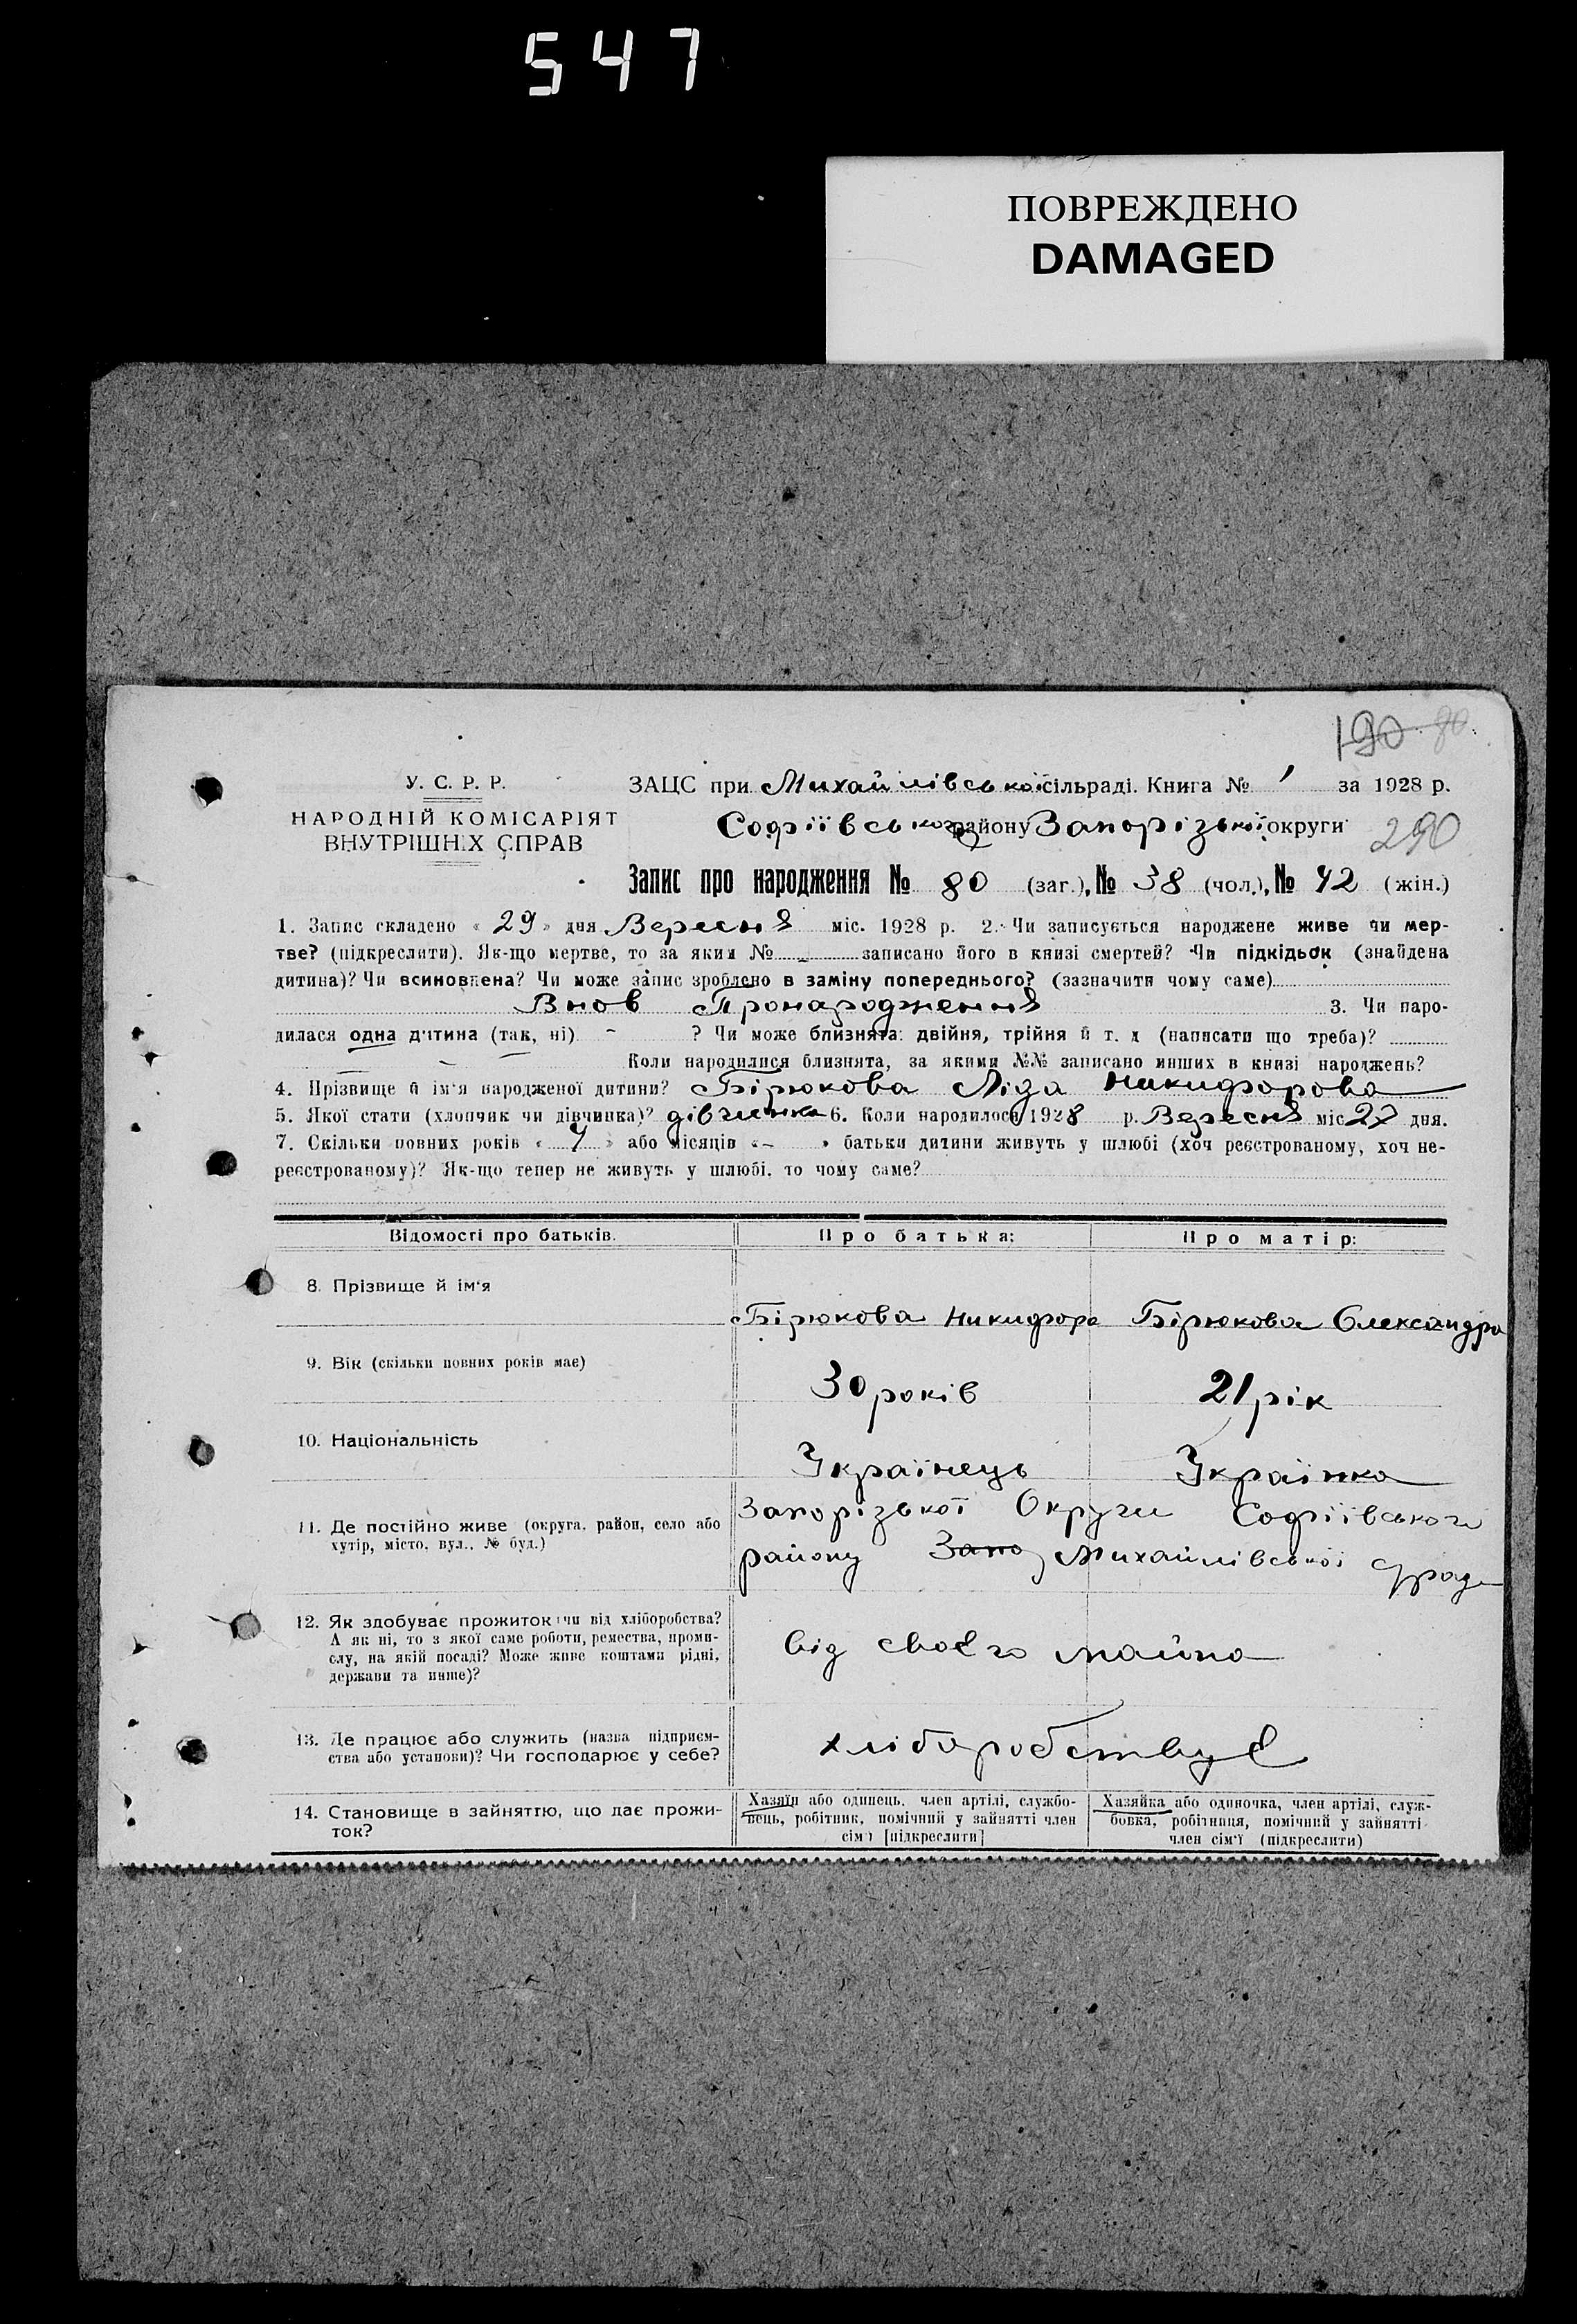 547
ПОВРЕЖДЕНО
DAMAGED
190 80
У. С. Р. Р.
НАРОДНІЙ КОМІСАРІЯТ
ВНУТРІШНІХ СПРАВ
ЗАЦС при Михайлівській сільраді. Книга № 1 за 1928 р.
Софіївського району Запорізької округи
290
Запис про народження № 80 (заг.), № 38 (чол.), № 42 (жін.)
1. Запис складено « 29 » дня Вересня міс. 1928 р. 2. Чи записується народжене живе чи мер-
тве? (підкреслити). Як-що мертве, то за яким № - записано його в книзі смертей? Чи підкідьок (знайдена
дитина)? Чи всиновлена? Чи може запис зроблено в заміну попереднього? (зазначити чому саме)
Внов Пронародження 3. Чи наро-
дилася одна дитина (так, ні) - ? Чи може близнята: двійня, трійня й т. д (написати що треба)?
Коли народилися близнята, за якими №№ записано инших в книзі народжень?
4. Прізвище й ім'я народженої дитини? Бірюкова Ліда Никифорова
5. Якої стати (хлопчик чи дівчинка)? дівчинка 6. Коли народилося 1928 р. Вересня міс 27 дня.
7. Скільки повних років « 4 » або місяців « – » батьки дитини живуть у шлюбі (хоч реєстрованому, хоч не-
реєстрованому)? Як-що тепер не живуть у шлюбі, то чому саме?
Відомості про батьків. Про батька: Про матір:
8. Прізвище й ім'я
Бірюкова Никифора Бірюкова Олександра
9. Вік (скільки повних років має)
30 років 21 рік
10. Національність
Українець Українка
11. Де постійно живе (округа, район, село або
хутір, місто, вул., № буд.)
Запорізької Округи Софіївського
району Запо Михайлівської
12. Як здобуває прожиток: чи від хліборобства?
А як ні, то з якої саме роботи, ремества, промп-
слу, на якій посаді? Може живе коштами рідні,
держави та инше)?
від своєго майна
13. Де працює або служить (назва підприєм-
ства або установи)? Чи господарює у себе?
хліборобствує
14. Становище в зайняттю, що дає прожи-
ток?
Хазяїн або одинець, член артілі, службо-
вець, робітник, помічний у зайнятті член
сім'ї [підкреслити]
Хазяйка або одиночка, член артілі, служ-
бовка, робітниця, помічний у зайнятті
член сім'ї (підкреслити)